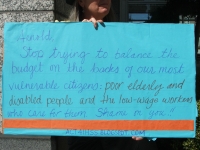 Arnold:
Stop trying to balance the
budget on the backs of our most
vulnerable citizens: poor elderly and
disabled people and the low-wage workers
who care for them. Shame on you!!